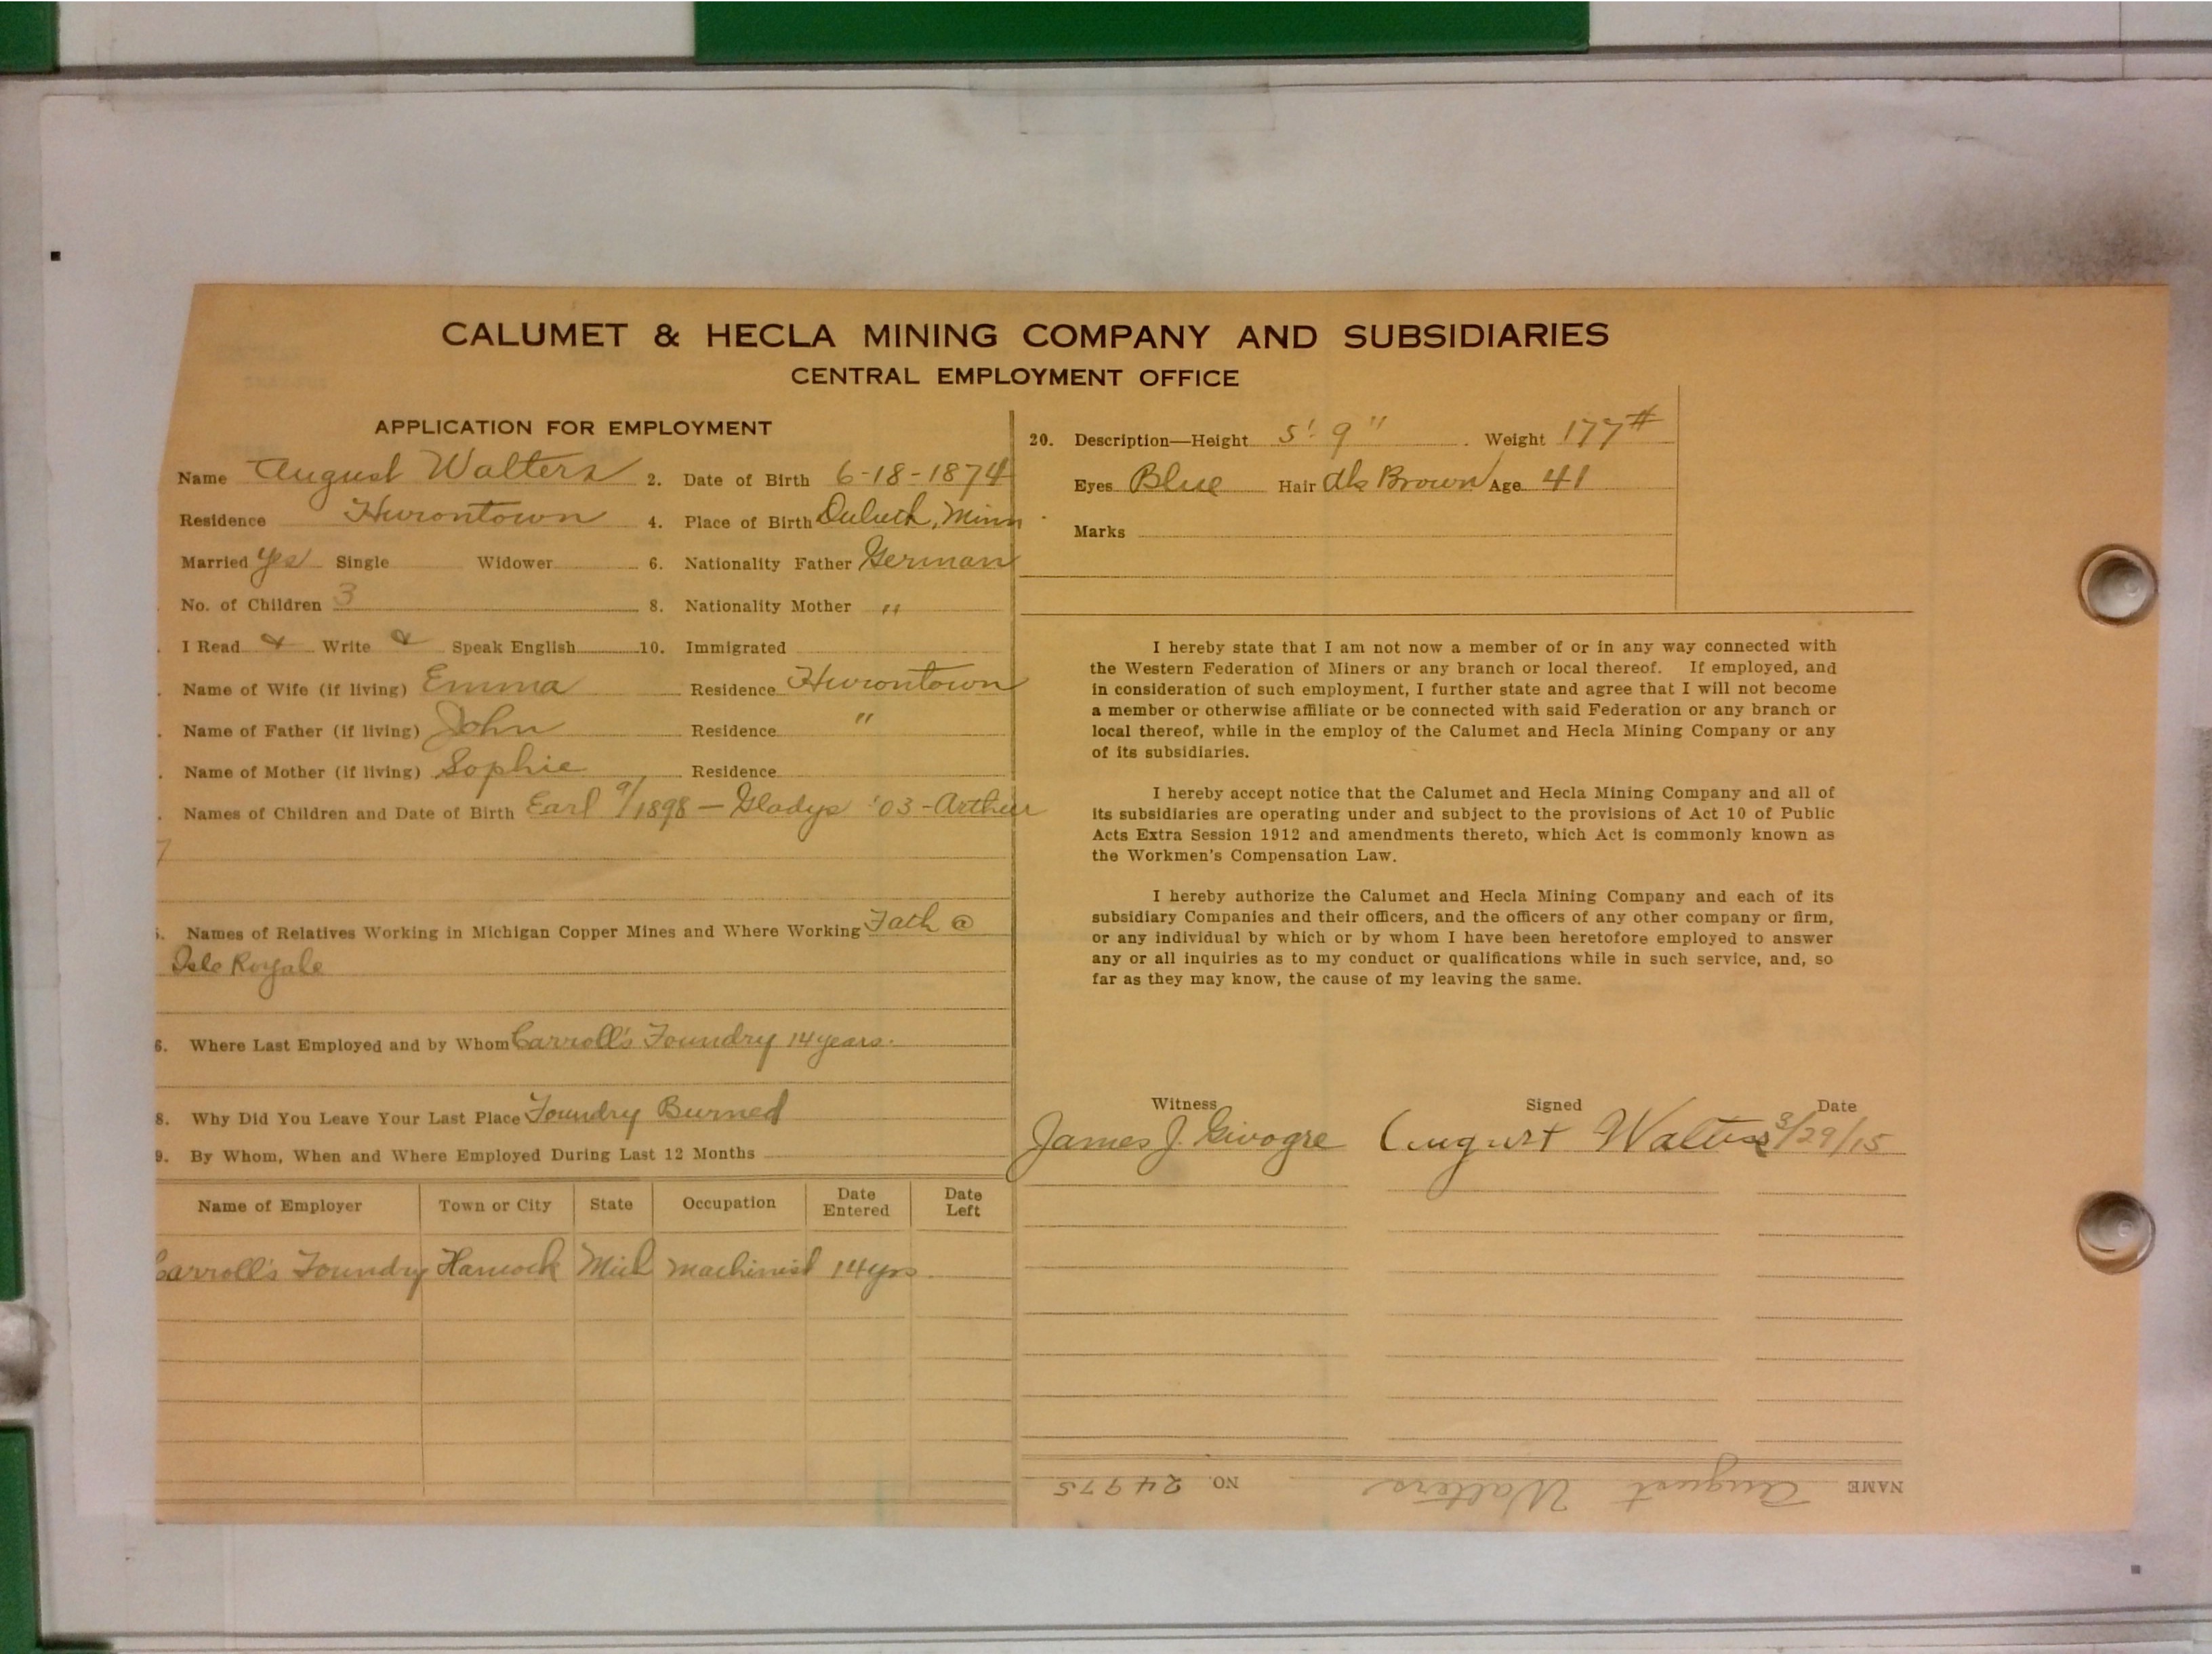 CALUMET & HECLA MINING COMPANY AND SUBSIDIARIES
CENTRAL EMPLOYMENT OFFICE
APPLICATION FOR EMPLOYMENT
Name August Walters 2. Date of Birth 6-18-1874
Residence Hurontown 4. Place of Birth Duluth, Minn
Married Yes Single Widower 6. Nationality Father German
No. of Children 3 8. Nationality Mother "
I Read & Write & Speak English 10. Immigrated
Name of Wife (if living) Emma Residence Hurontown
Name of Father (if living) John Residence "
Name of Mother (if living) Sophie Residence
Names of Children and Date of Birth Earl 9/1898 — Gladys '03 - Arthur
7
5. Names of Relatives Working in Michigan Copper Mines and Where Working Fath @
Isle Royale
6. Where Last Employed and by Whom Carroll's Foundry 14 years.
8. Why Did You Leave Your Last Place Foundry Burned
9. By Whom, When and Where Employed During Last 12 Months
Name of Employer Town or City State Occupation Date Entered Date Left
Carroll's Foundry Hancock Mich machinist 14 yrs
20. Description—Height 5' 9" Weight 177 #
Eyes Blue Hair dk Brown Age 41
Marks
I hereby state that I am not now a member of or in any way connected with
the Western Federation of Miners or any branch or local thereof. If employed, and
in consideration of such employment, I further state and agree that I will not become
a member or otherwise affiliate or be connected with said Federation or any branch or
local thereof, while in the employ of the Calumet and Hecla Mining Company or any
of its subsidiaries.
I hereby accept notice that the Calumet and Hecla Mining Company and all of
its subsidiaries are operating under and subject to the provisions of Act 10 of Public
Acts Extra Session 1912 and amendments thereto, which Act is commonly known as
the Workmen's Compensation Law.
I hereby authorize the Calumet and Hecla Mining Company and each of its
subsidiary Companies and their officers, and the officers of any other company or firm,
or any individual by which or by whom I have been heretofore employed to answer
any or all inquiries as to my conduct or qualifications while in such service, and, so
far as they may know, the cause of my leaving the same.
Witness Signed Date
James J. August Walters 3/29/15
NAME August Walters NO. 24975